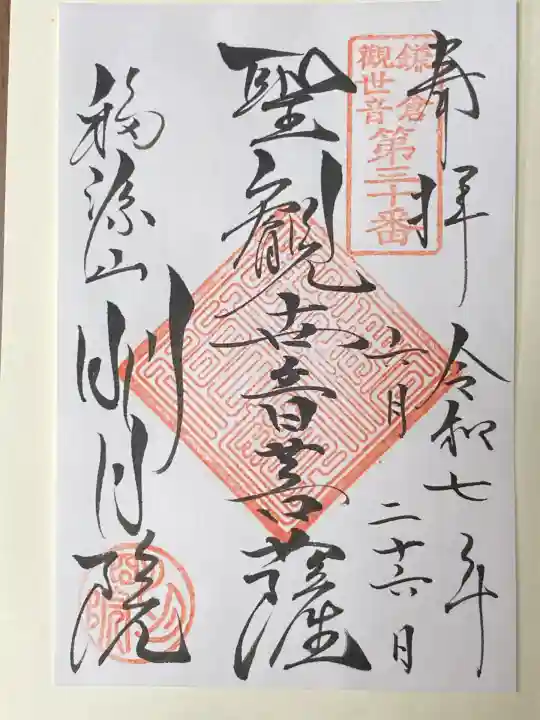 奉拝
令和七年
六月
二十六日
鎌倉
觀世音
第三十番
聖観世音菩薩
福源山
明月院